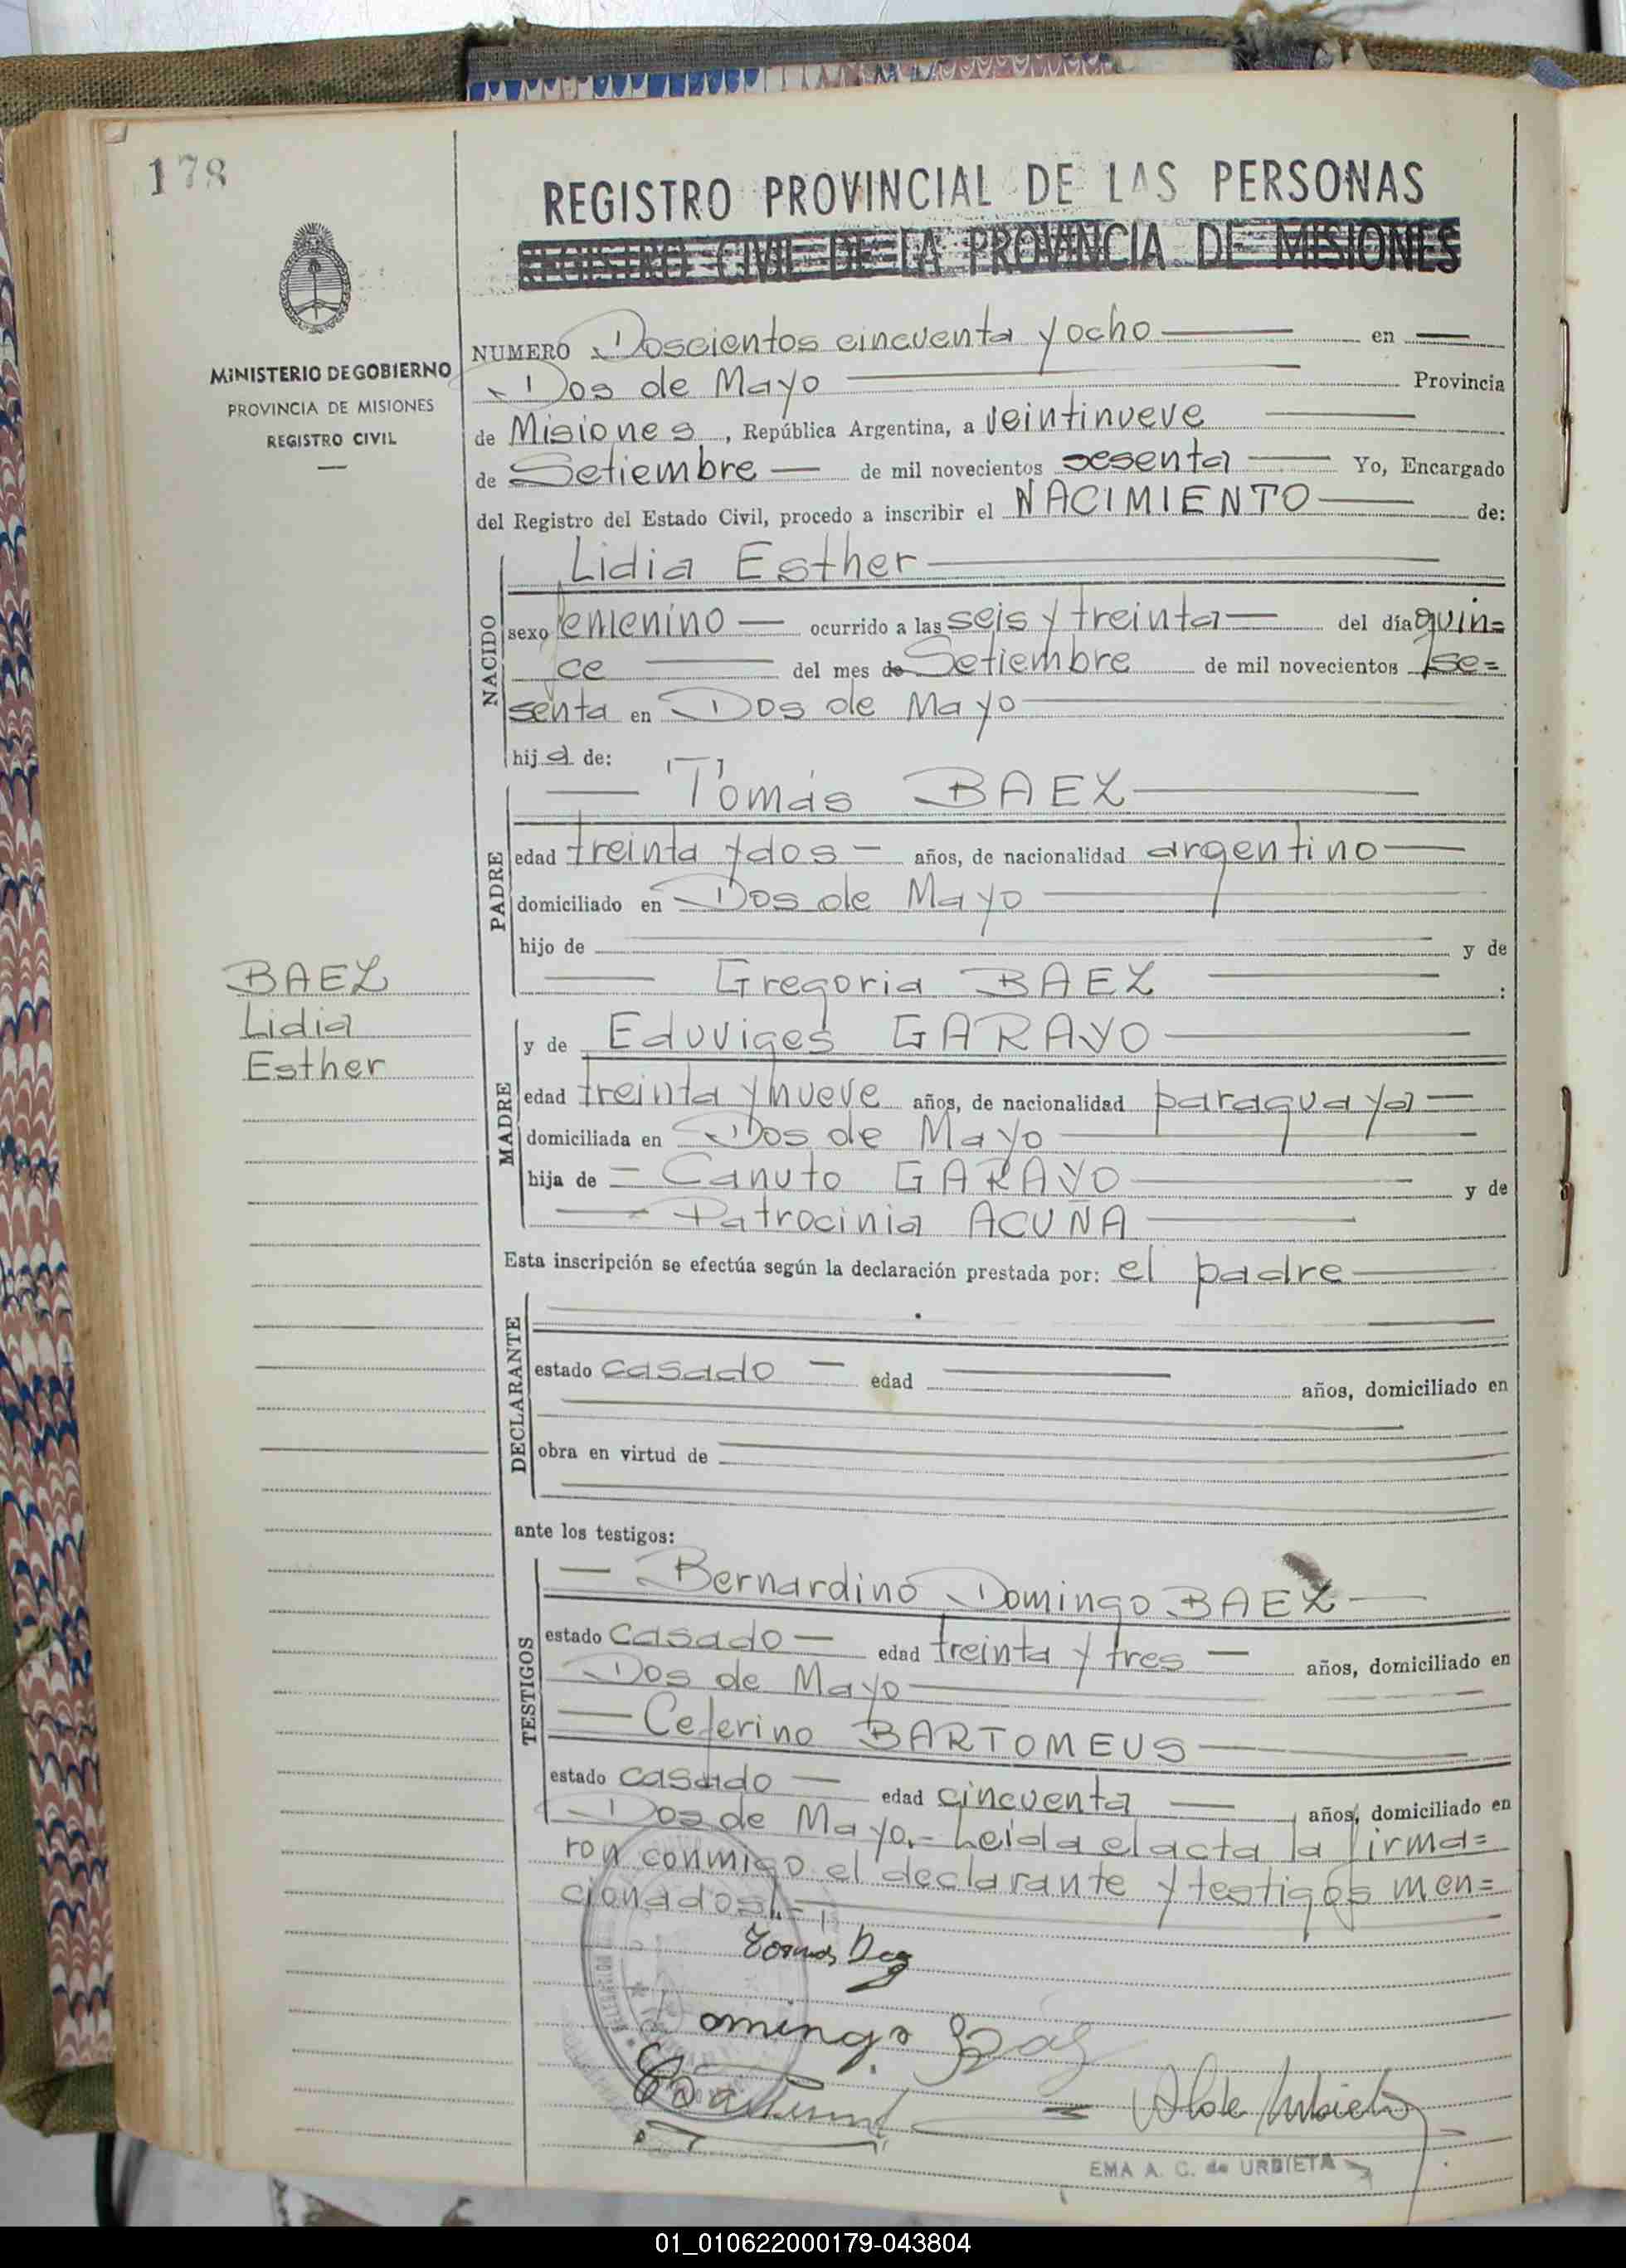 178
REGISTRO PROVINCIAL DE LAS PERSONAS
REGISTRO CIVIL DE LA PROVINCIA DE MISIONES
MINISTERIO DE GOBIERNO
PROVINCIA DE MISIONES
REGISTRO CIVIL
NUMERO Doscientos cincuenta y ocho en
Dos de Mayo Provincia
de Misiones, República Argentina, a veintinueve
de Setiembre de mil novecientos sesenta Yo, Encargado
del Registro del Estado Civil, procedo a inscribir el NACIMIENTO de:
NACIDO
Lidia Esther
sexo femenino ocurrido a las seis y treinta del día quin=
ce del mes de Setiembre de mil novecientos se=
senta en Dos de Mayo
hija de:
PADRE
Tomás BAEZ
edad treinta y dos años, de nacionalidad argentino
domiciliado en Dos de Mayo
hijo de y de
Gregoria BAEZ :
BAEZ
Lidia
Esther
MADRE
y de Eduviges GARAYO
edad treinta y nueve años, de nacionalidad paraguaya
domiciliada en Dos de Mayo
hija de Canuto GARAYO y de
Patrocinia ACUÑA
Esta inscripción se efectúa según la declaración prestada por: el padre
DECLARANTE
estado casado edad años, domiciliado en
obra en virtud de
ante los testigos:
TESTIGOS
Bernardino Domingo BAEZ
estado casado edad treinta y tres años, domiciliado en
Dos de Mayo
Ceferino BARTOMEUS
estado casado edad cincuenta años, domiciliado en
Dos de Mayo.= Leida el acta la firma=
ron conmigo el declarante y testigos men=
cionados.-
Tomás Baez
Domingo Baez
EMA A. C. de URBIETA
01_010622000179-043804